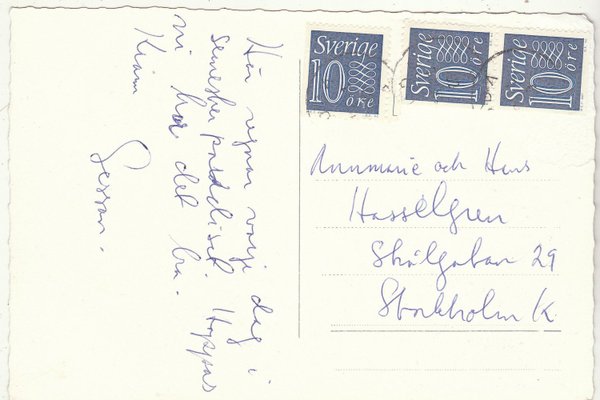 Här regnar varje dag i
semesterparadiset. Hoppas
ni har det bra.
Kram
Sverige
10 öre
Sverige
10 öre
Sverige
10 öre
Annmarie och Hans
Hasselgren
29
Stockholm K